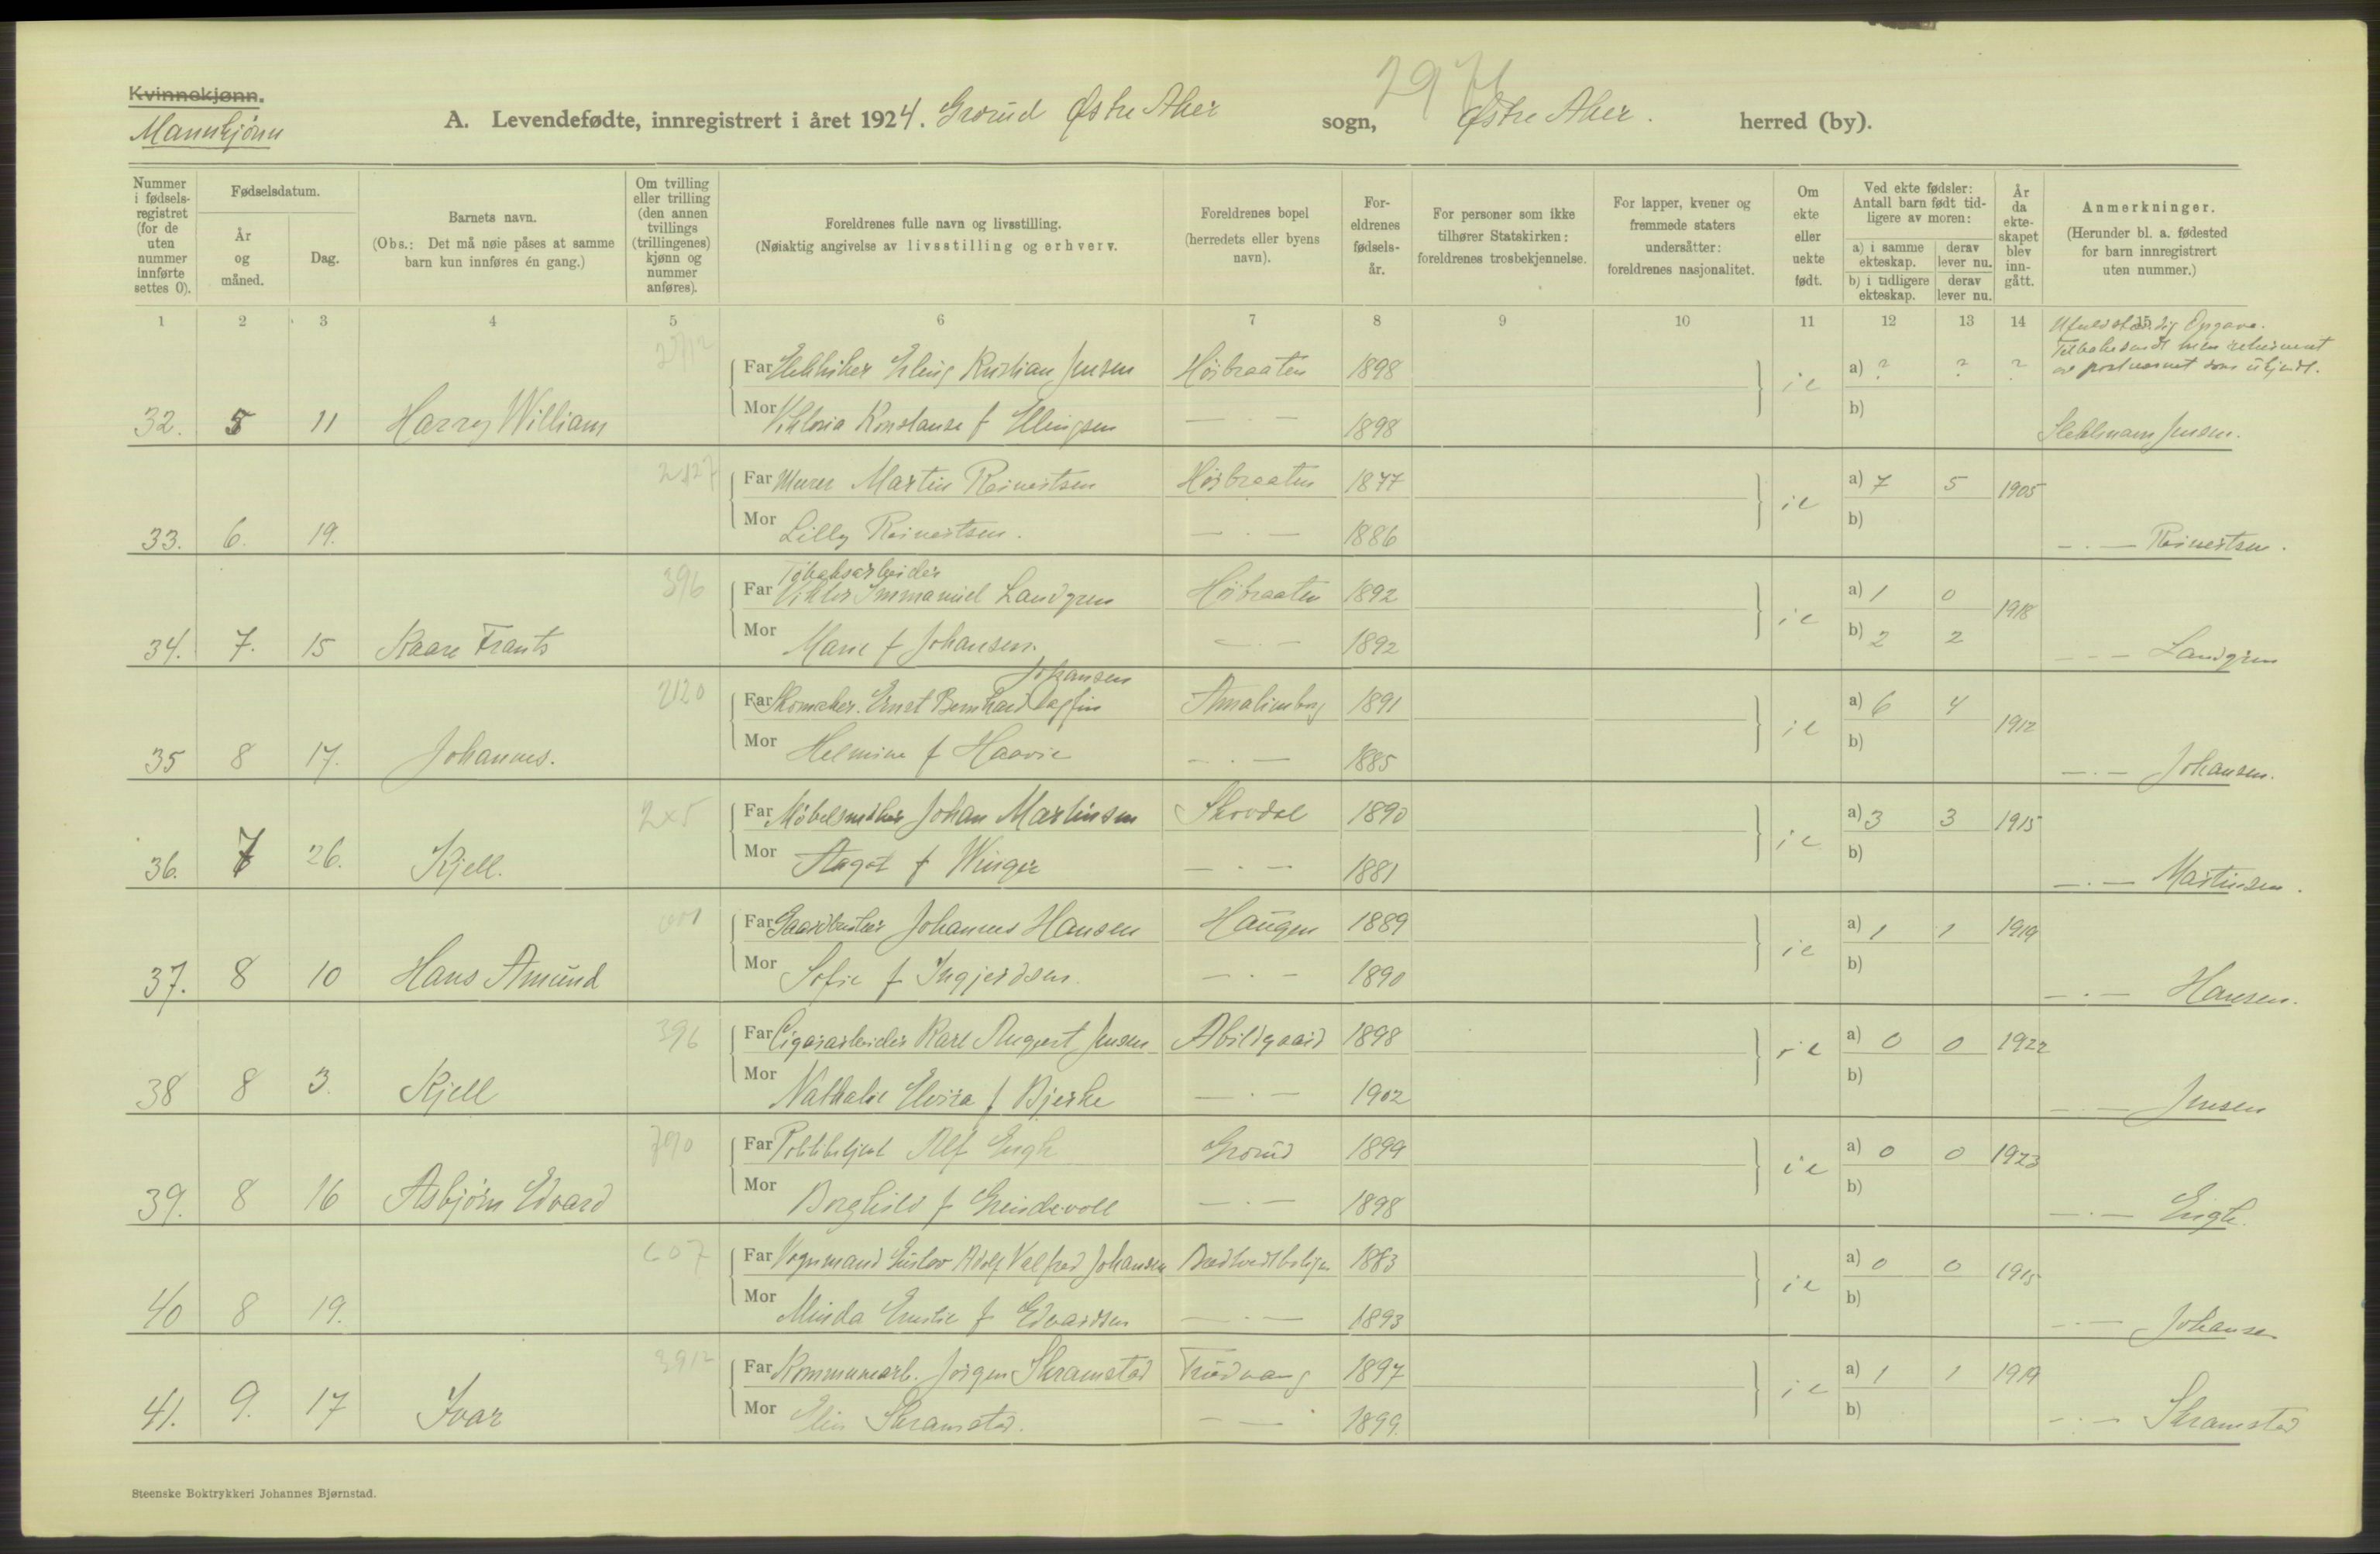 Kvinnekjønn.
Mannkjønn
2971
A. Levendefødte, innregistrert i året 1924. Grorud Østre Aker sogn, Østre Aker. herred (by).
Nummer i fødselsregistret (for de uten nummer innførte settes 0).
Fødselsdatum.
År og måned.
Dag.
Barnets navn.
(Obs.: Det må nøie påses at samme barn kun innføres én gang.)
Om tvilling eller trilling (den annen tvillings (trillingenes) kjønn og nummer anføres).
Foreldrenes fulle navn og livsstilling.
(Nøiaktig angivelse av livsstilling og erhverv.
Foreldrenes bopel (herredets eller byens navn).
Foreldrenes fødselsår.
For personer som ikke tilhører Statskirken: foreldrenes trosbekjennelse.
For lapper, kvener og fremmede staters undersåtter: foreldrenes nasjonalitet.
Om ekte eller uekte født.
Ved ekte fødsler: Antall barn født tidligere av moren:
a) i samme ekteskap. derav lever nu.
b) i tidligere ekteskap. derav lever nu.
År da ekteskapet blev inngått.
Anmerkninger.
(Herunder bl. a. fødested for barn innregistrert uten nummer.)
1 2 3 4 5 6 7 8 9 10 11 12 13 14 15
Ufuldstændig Opgave.
2712 Far Elektriker Erling Kristian Jensen Høibraaten 1898 ie a) ? ? ?
32. 5 11 Harry William Mor Viktoria Konstanse f Ellingsen — . — 1898 b) Jensen.
2127 Far Murer Martin Reinertsen Høibraaten 1877 ie a) 7 5 1905
33. 6. 19. Mor Lilly Reinertsen. — . — 1886 b) — . — Reinertsen.
Tobaksarbeider
396 Far Viktor Immanuel Landgren Høibraaten 1892 ie a) 1 0 1918
34. 7. 15 Kaare Frants Mor Marie f Johansen. — . — 1892 b) 2 2 — — Landgren
Johansen
2120 Far Skomaker. Ernst Bernhard Dagfin Amalienborg 1891 ie a) 6 4 1912
35 8 17. Johannes. Mor Helmine f Haavie — . — 1885 b) — . — Johansen.
2x5 Far Møbelsnekker Johan Martinsen Skovdal 1890 ie a) 3 3 1915
36. 7 26. Kjell. Mor Aagot f Winger — . — 1881 b) — . — Martinsen.
001 Far Gaardbruker Johannes Hansen Haugen 1889 ie a) 1 1 1919
37. 8 10 Hans Amund Mor Sofie f Ingjerdsen. — . — 1890 b) — . — Hansen.
396 Far Cigararbeider Karl August Jensen Abildgaard 1898 ie a) 0 0 1922
38 8 3. Kjell Mor Nathalie Elvira f Bjerke — . — 1902 b) — . — Jensen
Far Politibetjent Alf Engh Grorud 1899 ie a) 0 0 1923
39. 8 16 Asbjørn Edvard Mor Borghild f — . — 1898 b) — . — Engh.
607 Far Vognmand Gustav Adolf Valfred Johansen 1883 ie a) 0 0 1915
40 8 19. Mor Minda Emilie f Edvardsen — . — 1893 b) — . — Johansen
3912 Far Kommunearb. Jørgen Skramstad Trudvang 1897 ie a) 1 1 1919
41. 9. 17 Ivar Mor Elin Skramstad. — — 1899. b) — . — Skramstad
Steenske Boktrykkeri Johannes Bjørnstad.